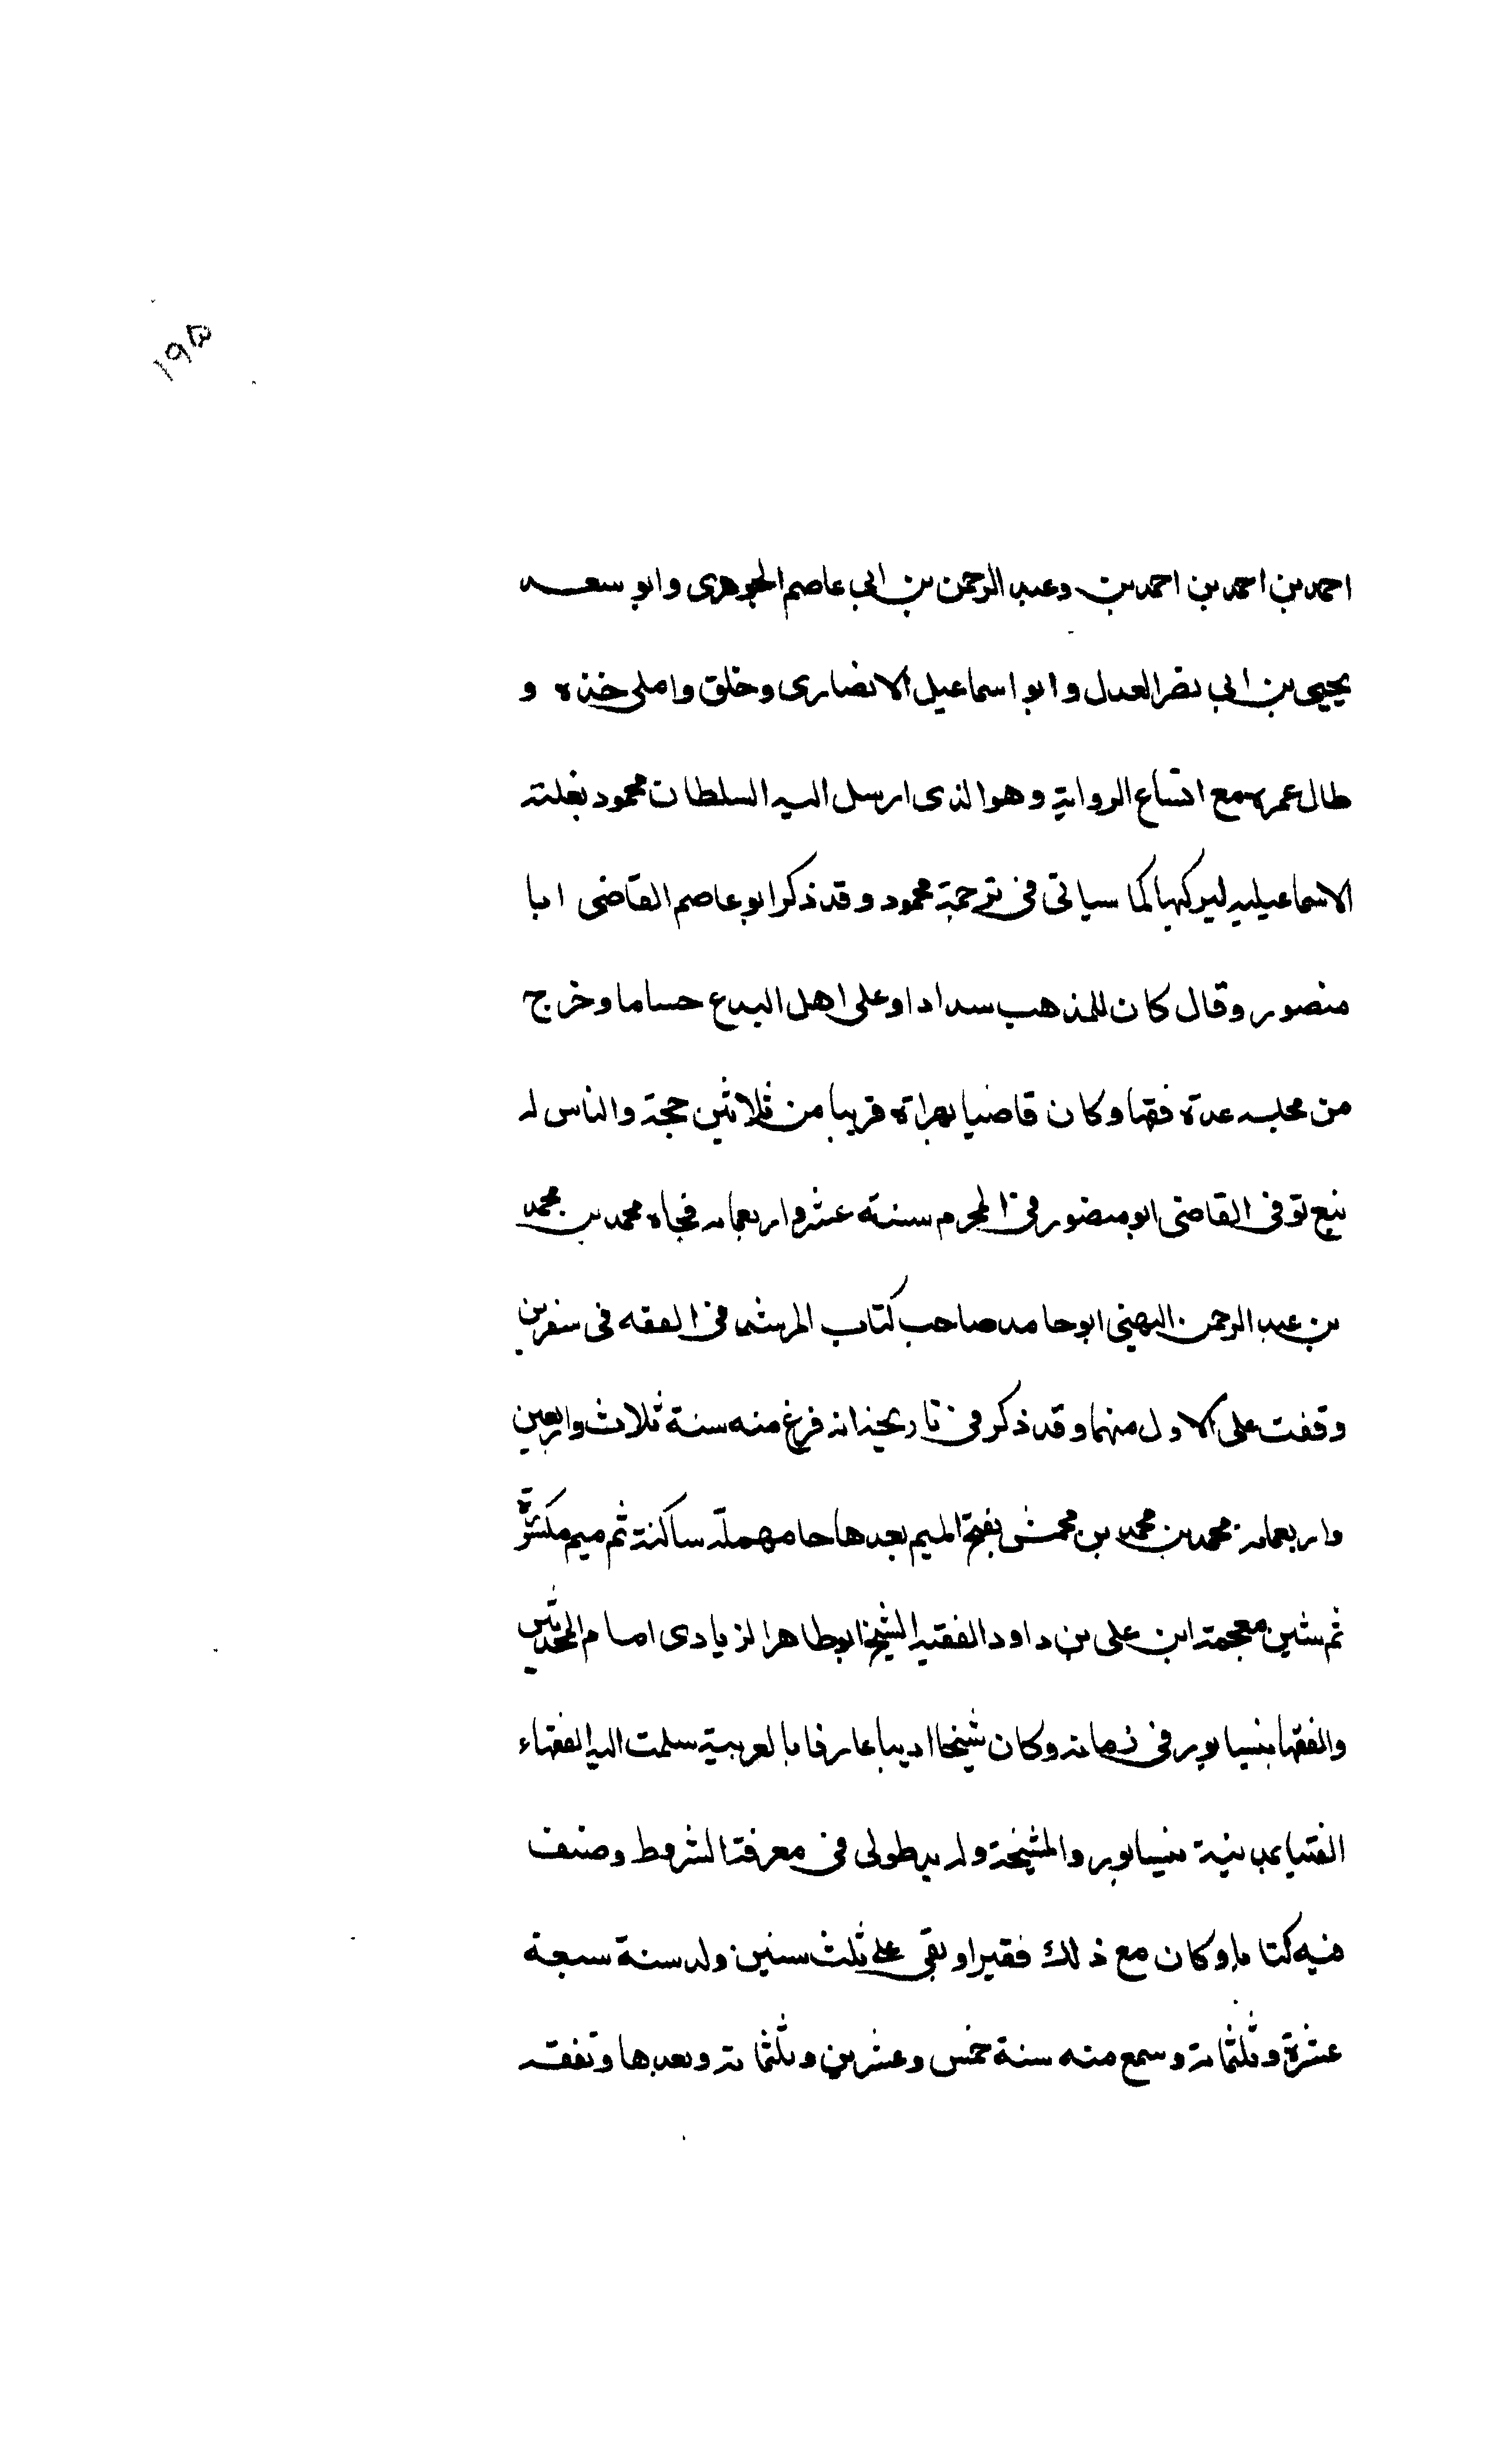 ١٩٥
احمد بن احمد بن احمد بن وعبد الرحمن بن ابي عاصم الجوهرى وابو سعد
يحيى بن ابي نصر العدل وابو اسماعيل الانصارى وخلق واملى خذه و
طال عمره مع اتساع الرواية وهو الذى ارسل اليه السلطان محمود بغلته
الاسماعيليه ليركبها كما سياتى فى ترجمة محمود وقد ذكر ابو عاصم القاضى ابا
منصور وقال كان للمذهب سدادا وعلى اهل البدع حساما وخرج
من مجلسه عدة فقها وكان قاضيا بهراة قريبا من ثلاثين حجة والناس له
تبع توفى القاضى ابو منصور فى المحرم سنة عشر واربعمايه فجاه محمد بن محمد
بن عبد الرحمن النهينى ابو حامد صاحب كتاب المرشد فى الفقه فى سفرين
وقفت على الاول منهما وقد ذكر فى تاريخه انه فرغ منه سنة ثلاث واربعين
واربعمايه محمد بن محمد بن محمش بفتح الميم بعدها حا مهملة ساكنة ثم ميم مكسورة
ثم شين معجمة ابن على بن داود الفقيه الشيخ ابو طاهر الزيادى امام المحدثين
والفقها بنيسابور فى زمانه وكان شيخا اديبا عارفا بالعربية سلمت اليه الفقهاء
الفتيا بمدينة نيسابور والمشيخة وله يد طولى فى معرفة الشروط وصنف
فيه كتابا وكان مع ذلك فقيرا وبقى على ثلث سنين ولد سنة سبعة
عشرة وثلثماية وسمع منه سنة خمس وعشرين وثلثماية وبعدها وتفقه